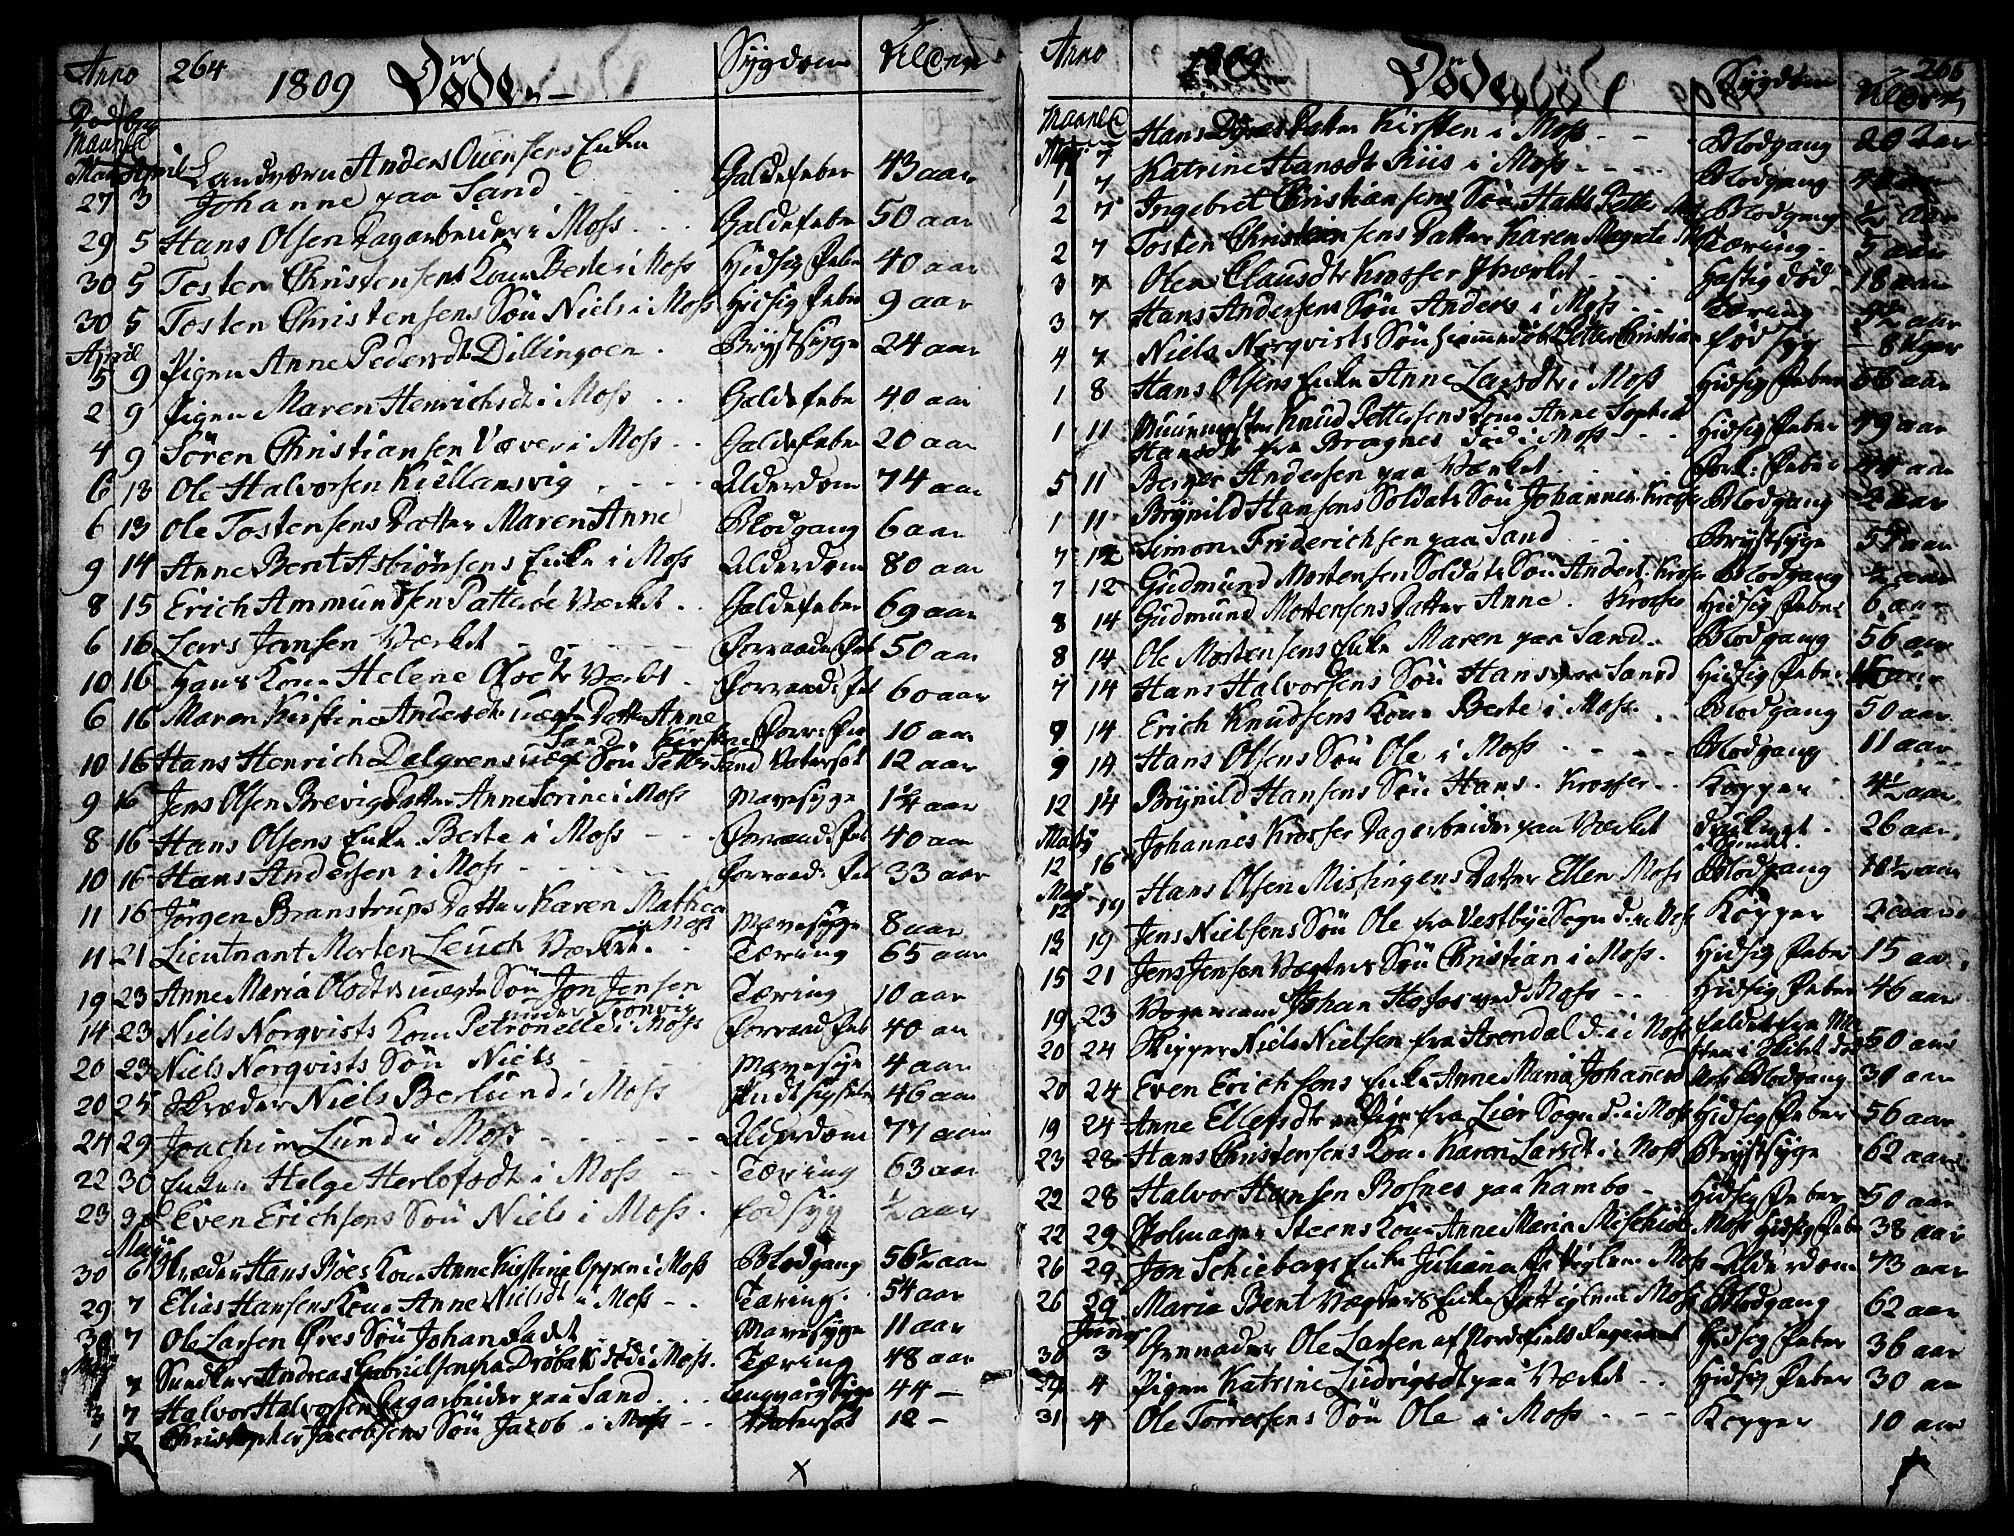 Anno 264 1809 Døde Sygdom Alderen
Maaned
April Landværn Anders Ouensens Enke
27 3 Johanne paa Sand Galdefeber 43 aar
29 5 Hans Olsen Dagarbeider i Moss Galdefeber 50 aar
30 5 Tosten Christensens Kone Berte i Moss Hidsig Feber 40 aar
30 5 Tosten Christensens Søn Niels i Moss Hidsig Feber 9 aar
April
5 9 Pigen Anne Pedersdtr Dillingøen Brystsyge 24 aar
2 9 Pigen Maren Henrichsdt i Moss Galdefeber 40 aar
4 9 Sören Christiansen Væver i Moss Galdefeber 20 aar
6 13 Ole Halvorsen Kiellansvig Alderdom 74 aar
6 13 Ole Tostensens Datter Maren Anne Blodgang 6 aar
9 14 Anne Berit Asbiörsens Enke i Moss Alderdom 80 aar
8 15 Erich Ammundsen Værket Galdefeber 69 aar
6 16 Lars Jansen Værket Forraad Feb 50 aar
10 16 Hans Kone Helene Olsdtr Værket Forraad Feb 60 aar
6 16 Maren Kirstine Andersdtr uægte Datter Anne
Sand Kirstine Forr. Feb 10 aar
10 16 Hans Henrich Dalgrens uægte Søn Petter Sand Vatersot 12 aar
9 16 Jens Olsen Brevigs Datter Anne Serine i Moss Mavesyge 1 1/4 aar
8 16 Hans Olsens Enke Berte i Moss Forraad Feb 40 aar
10 16 Hans Andersen i Moss Forraad Feb 33 aar
11 16 Jörgen Branstrups Datter Karen Mathea
i Moss Mavesyge 8 aar
11 21 Lieutnant Morten Leuch Værket Tæring 65 aar
19 23 Anne Maria Olsdtrs uægte Søn Jon Jensen
Tæring 10 aar
14 23 Niels Norqvists Kone Petronelle i Moss Forraad Feb 40 aar
20 23 Niels Norqvists Søn Niels Mavesyge 4 aar
20 25 Skræder Niels Berlund i Moss 46 aar
24 29 Joachim Lund i Moss Alderdom 77 aar
22 30 Enken Helge Herlofsdt i Moss Tæring 63 aar
23 30 Even Erichsens Søn Niels i Moss fødsyg 1/2 aar
Maji
30 6 Skræder Hans Röes Kone Anne Kirstine Oppen i Moss Blodgang 56 1/2 aar
29 7 Elias Hansens Kone Anne Nielsdt i Moss Tæring 54 aar
30 7 Ole Larsen Øres Søn Johan Mavesyge 11 aar
Maji
1 7 Andreas Gabrielsen fra Dröbak död i Moss Tæring 48 aar
3 7 Halvor Halvorsen Dagarbeider paa Sand 44 —
1 7 Christopher Jacobsens Søn Jacob i Moss Vatersot 12 —
Anno 1809 Døde Sygdom 265 Alderen
Maaned
7 Hans Datter Kirsten i Moss Blodgang
1 7 Katrine Hansdt Riis i Moss Blodgang
2 7 Ingebret Christiansens Søn Hans Petter Moss Blodgang 1/2 aar
2 7 Tosten Christensens Datter Karen Magrete Moss Tæring 5 aar
3 7 Olen Clausdtr Krosser Værket Hastig död 18 aar
3 7 Hans Andersens Søn Anders i Moss Tæring
4 7 Niels Norqvists Søn hiemmedöbt Petter Christian fødsyg 8 Uger
1 8 Hans Olsens Enke Anne Larsdtr i Moss Hidsig Feber
1 11 Muurmester Knud Pettersens Kone Anne Sophia
Hansdt fra Bragnes död i Moss Hidsig Feber 49 aar
5 11 Berger Andersen paa Værket Feber 44 aar
1 11 Brynild Hansens Soldats Søn Johannes Krosser Blodgang 2 aar
7 12 Simon Friderichsen paa Sand Brystsyge
7 12 Gudmund Mortensen Soldats Søn Anders Krosser Blodgang
8 14 Gudmund Mortensens Datter Anne Krosser Hidsig Feber 6 aar
8 14 Ole Mortensens Enke Maren paa Sand Blodgang 56 aar
7 14 Hans Halvorsens Søn Hans paa Sand Hidsig Feber
9 14 Erich Knudsens Kone Berte i Moss Blodgang 50 aar
9 14 Hans Olsens Søn Ole i Moss Blodgang 11 aar
12 14 Brynild Hansens Søn Hans Krosser Kopper 4 1/2 aar
Maij
12 16 Johannes Krosser Dagarbeider paa Værket druknet
i Sundet 26 aar
Maij
12 19 Hans Olsen Missingens Datter Ellen Moss Blodgang 10 1/2 aar
13 19 Jens Nielsens Søn Ole fra Vestbye Sogn d. i Moss Kopper 2 aar
15 21 Jens Jensen Vægters Søn Christian i Moss Hidsig Feber 15 aar
19 23 Vognmand Johan ved Moss Hidsig Feber 46 aar
20 24 Skipper Niels Nielsen fra Arendal d. i Moss faldet fra
i Skibet död 50 aar
20 24 Even Erichsens Enke Anne Maria Moss Blodgang 30 aar
19 24 Anne Ellefsdt en Pige fra Lier Sogn d. i Moss Hidsig Feber 56 aar
23 28 Hans Christensens Kone Karen Larsdt i Moss Brystsyge 62 aar
22 28 Halvor Hansen Rosnes paa Kambo Hidsig Feber 50 aar
22 29 Steens Kone Anne Maria Moss Hidsig Feber 38 aar
26 29 Jon Schiebergs Enke Juliana Moss Alderdom 73 aar
26 29 Maria Bent Vægters Enke Fattiglem Moss Blodgang 62 aar
Junij
30 3 Grenadeer Ole Larsen af Nordenfields Regiment Hidsig Feber 36 aar
29 4 Pigen Katrine Ludvigsdt paa Værket Hidsig Feber 30 aar
31 4 Ole Torresens Søn Ole i Moss Kopper 10 aar